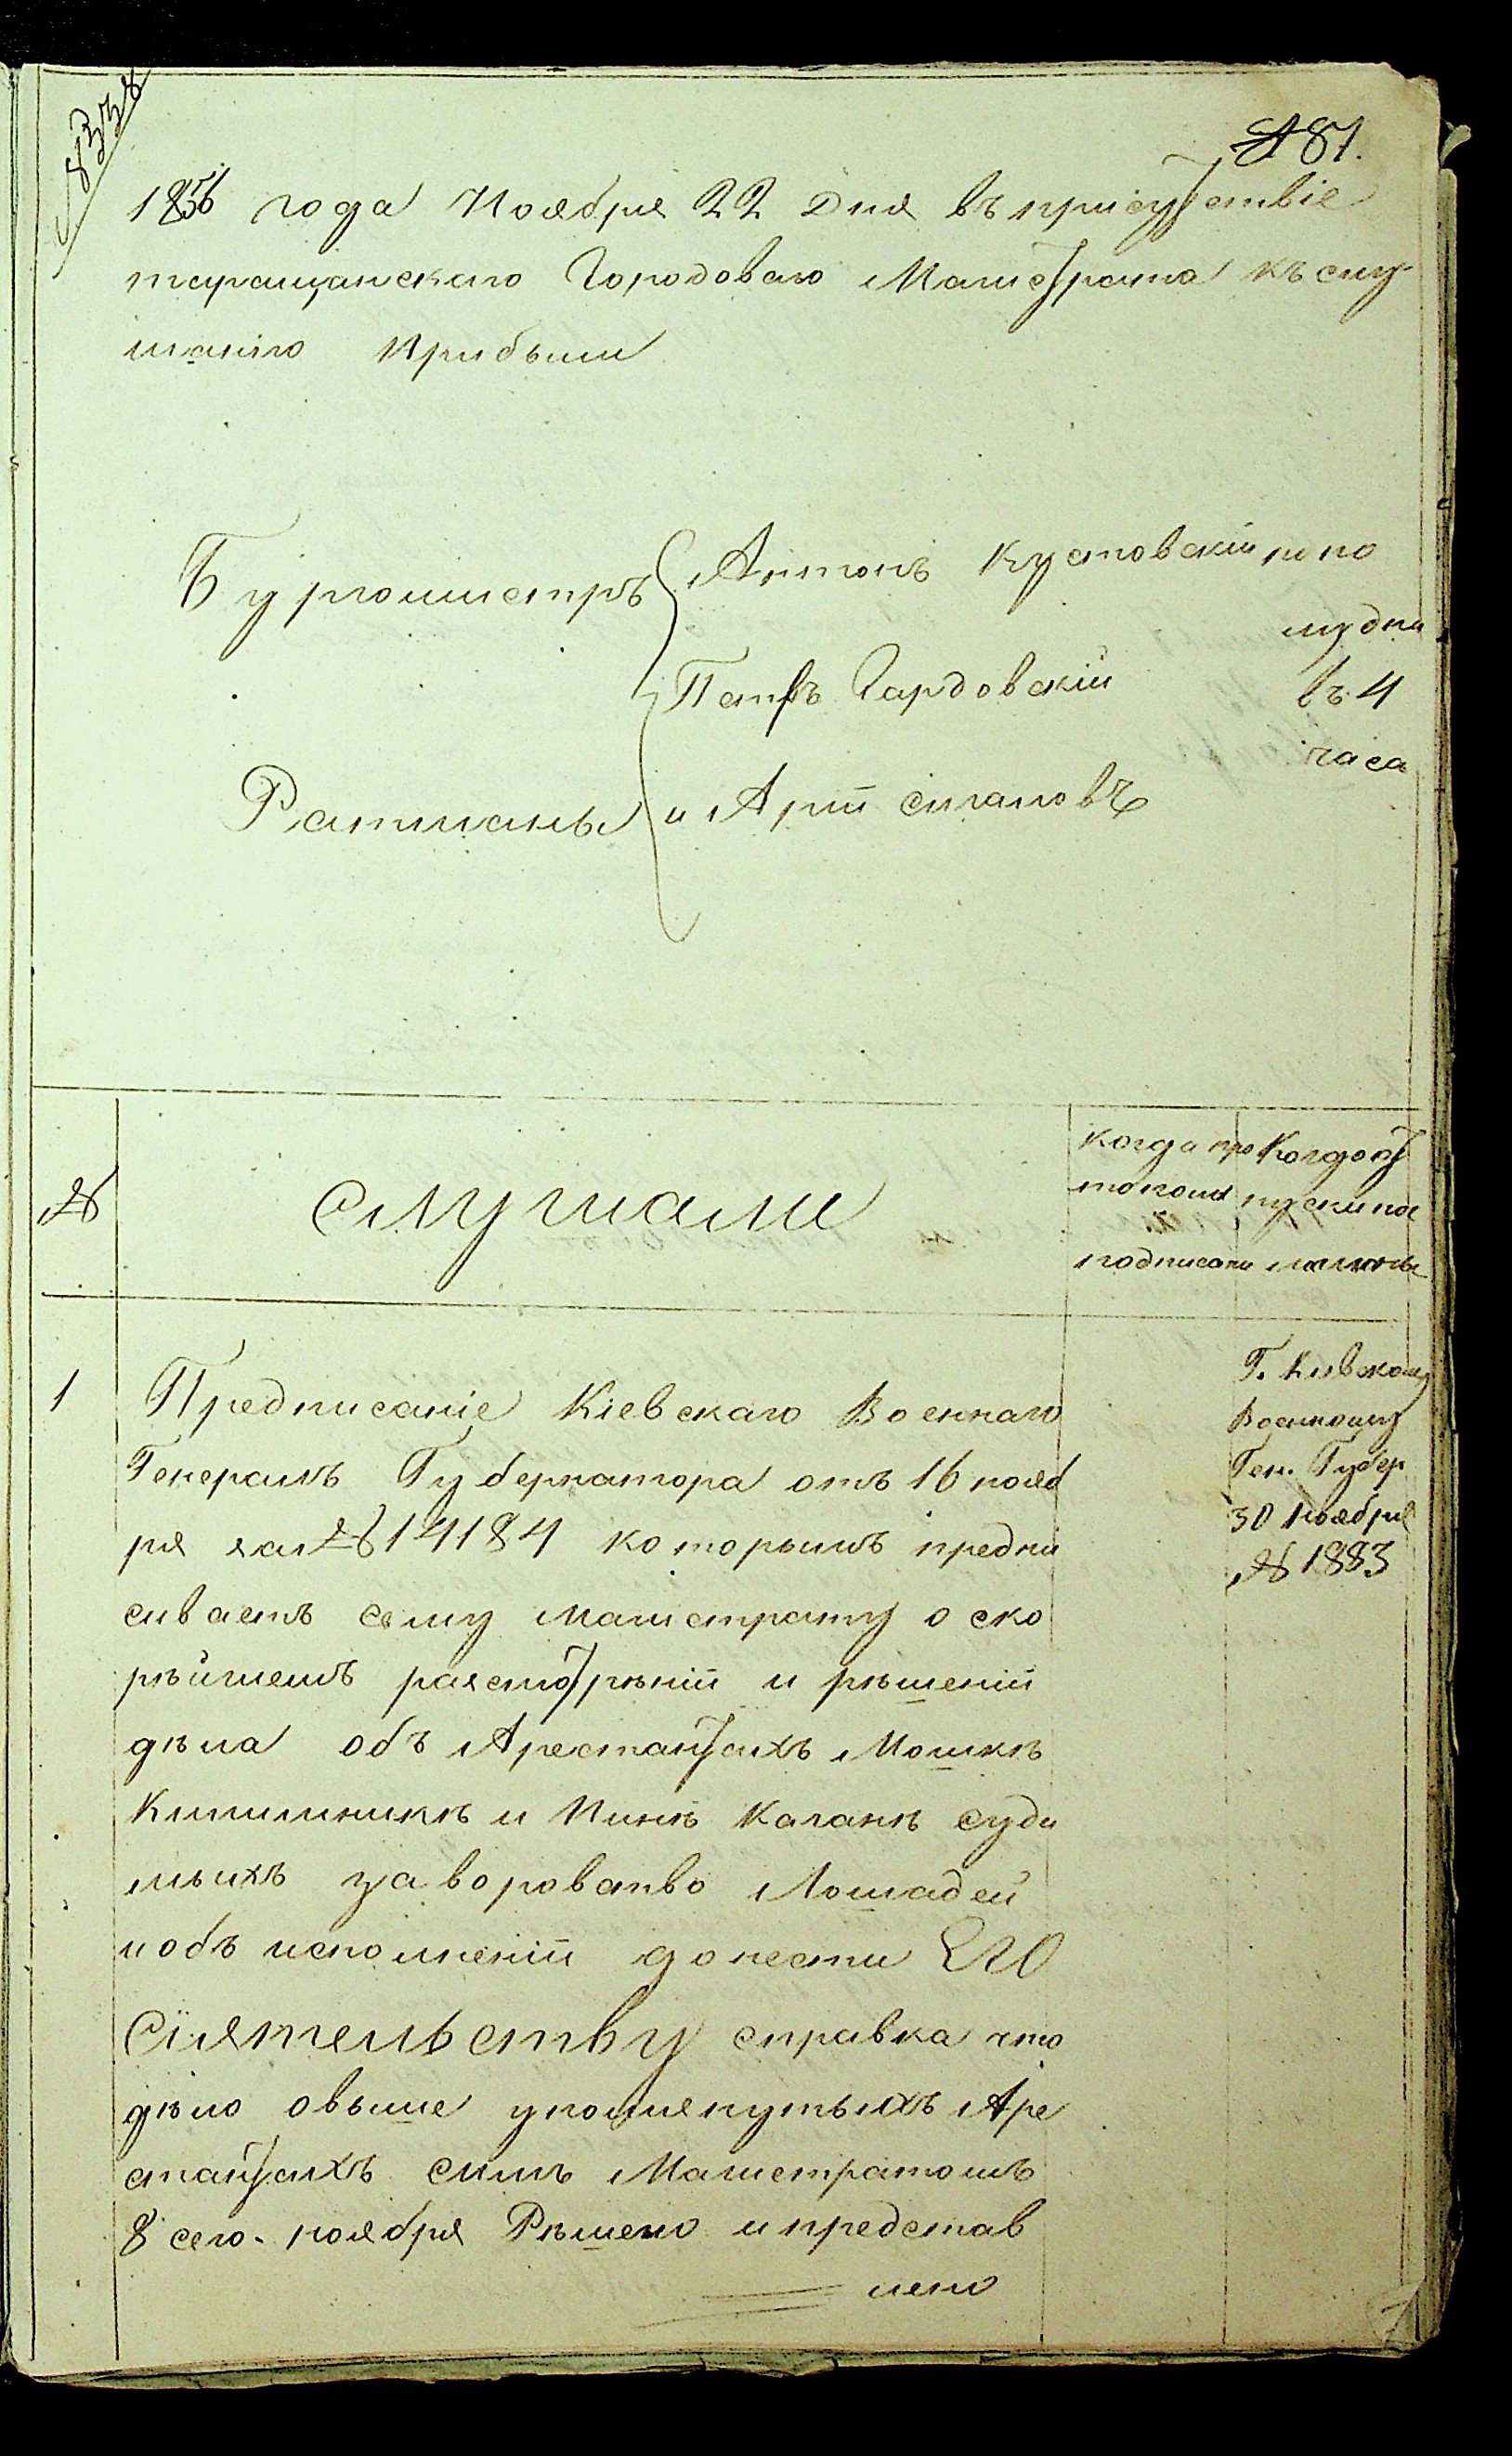 № 81.
1856 года Ноября 22 Дня въ присутствіе
таращанскаго Городоваго Магистрата къ слу
шанію Прибыли
Бургомистръ
Антонъ Кустовскій попо
лудни
Петръ Гардовскій въ 4
часа
Ратманы и Арій
№
слушали
когда про
токолъ
подписанъ
Когда от
пуски по
1
Предписаніе Кіевскаго Военнаго
Генералъ Губернатора отъ 16 нояб
ря за № 14184 которымъ предпи
сиваетъ сему магистрату о ско
рѣйшемъ разсмотрѣніи и рѣшеніи
дѣла объ Арестантахъ Мошкѣ
и Пинѣ Каганѣ суди
мыхъ за вороватво Лошадей
и объ исполненіи донести Его
Сіятельству справка что
дѣло овыше упомянутыхъ Аре
стантахъ симъ Магистратомъ
8 сего ноября Рѣшено и представ
лено
Г. Кіевскому
Военному
Ген. Губер
30 Ноября
№ 1883